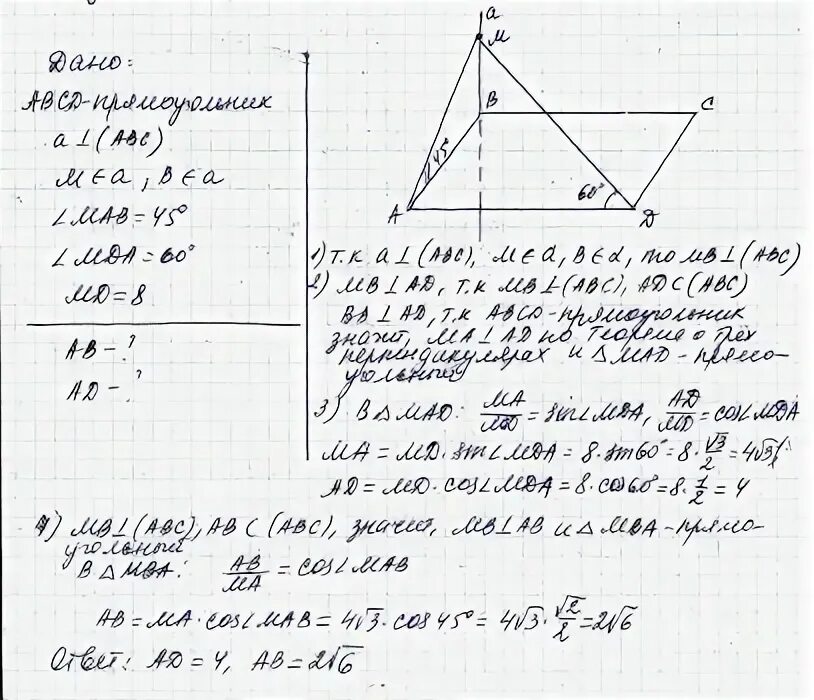 Дано:
ABCD-прямоугольник
a⊥(ABC)
M∈a, B∈a
∠MAB=45°
∠MDA=60°
MD=8
AB-?
AD-?
a
M
B
C
45°
60°
A
D
1) т.к a⊥(ABC), M∈a, B∈a, то MB⊥(ABC)
2) MB⊥AD, т.к MB⊥(ABC), AD⊂(ABC)
BA⊥AD, т.к ABCD-прямоугольник
значит, MA⊥AD по теореме о трёх
перпендикулярах и △MAD-прямо-
угольный
3) В △MAD: MA/MD = sin∠MDA, AD/MD = cos∠MDA
MA = MD·sin∠MDA = 8·sin60° = 8·√3/2 = 4√3
AD = MD·cos∠MDA = 8·cos60° = 8·1/2 = 4
4) MB⊥(ABC), AB⊂(ABC), значит, MB⊥AB и △MBA-прямо-
угольный
В △MBA: AB/MA = cos∠MAB
AB = MA·cos∠MAB = 4√3·cos45° = 4√3·√2/2 = 2√6
Ответ: AD = 4, AB = 2√6